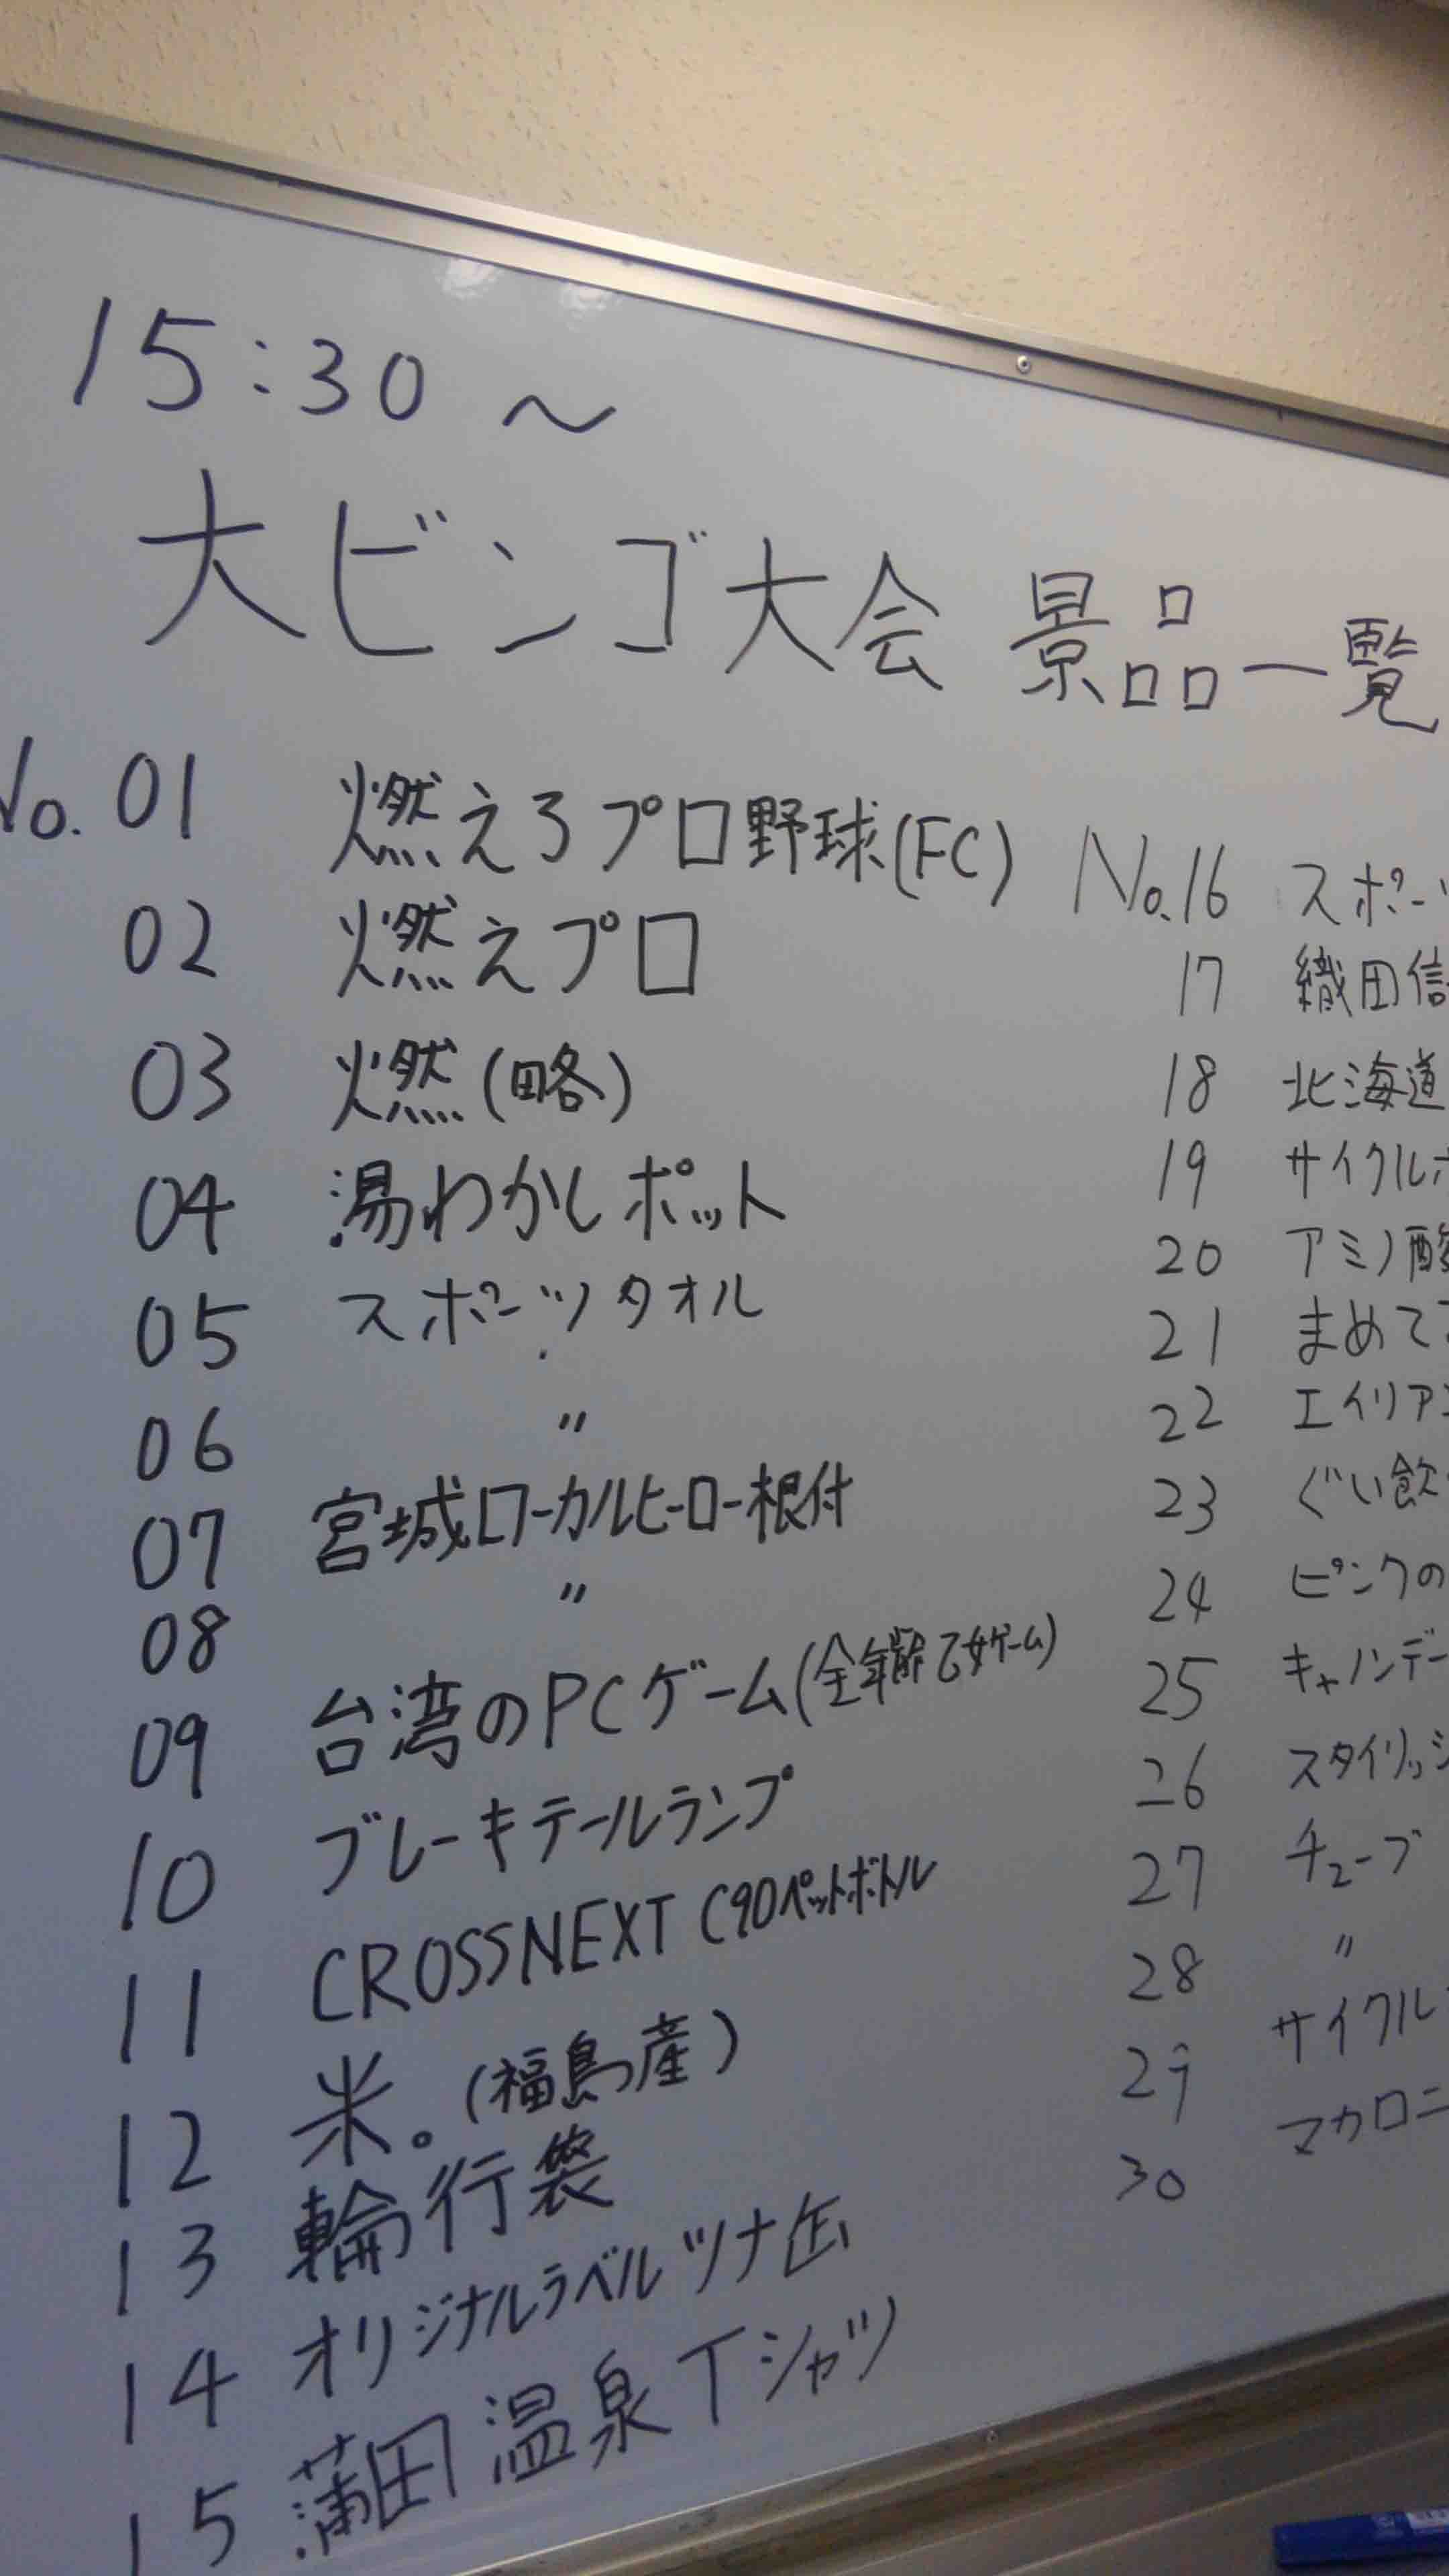 15:30〜
大ビンゴ大会 景品一覧
No. 01 燃えろプロ野球(FC)
02 燃えプロ
03 燃(略)
04 湯わかしポット
05 スポーツタオル
06 〃
07 宮城ローカルヒーロー根付
08 〃
09 台湾のPCゲーム(全年齢乙女ゲーム)
10 ブレーキテールランプ
11 CROSSNEXT C90ペットボトル
12 米。(福島産)
13 輪行袋
14 オリジナルラベルツナ缶
15 蒲田温泉Tシャツ
No.16 スポーツ
17 織田信
18 北海道
19 サイクルボ
20 アミノ酸
21 まめて
22 エイリアン
23 ぐい飲
24 ピンクの
25 キャノンデー
26 スタイリッシ
27 チューブ
28 〃
29 サイクル
30 マカロニ